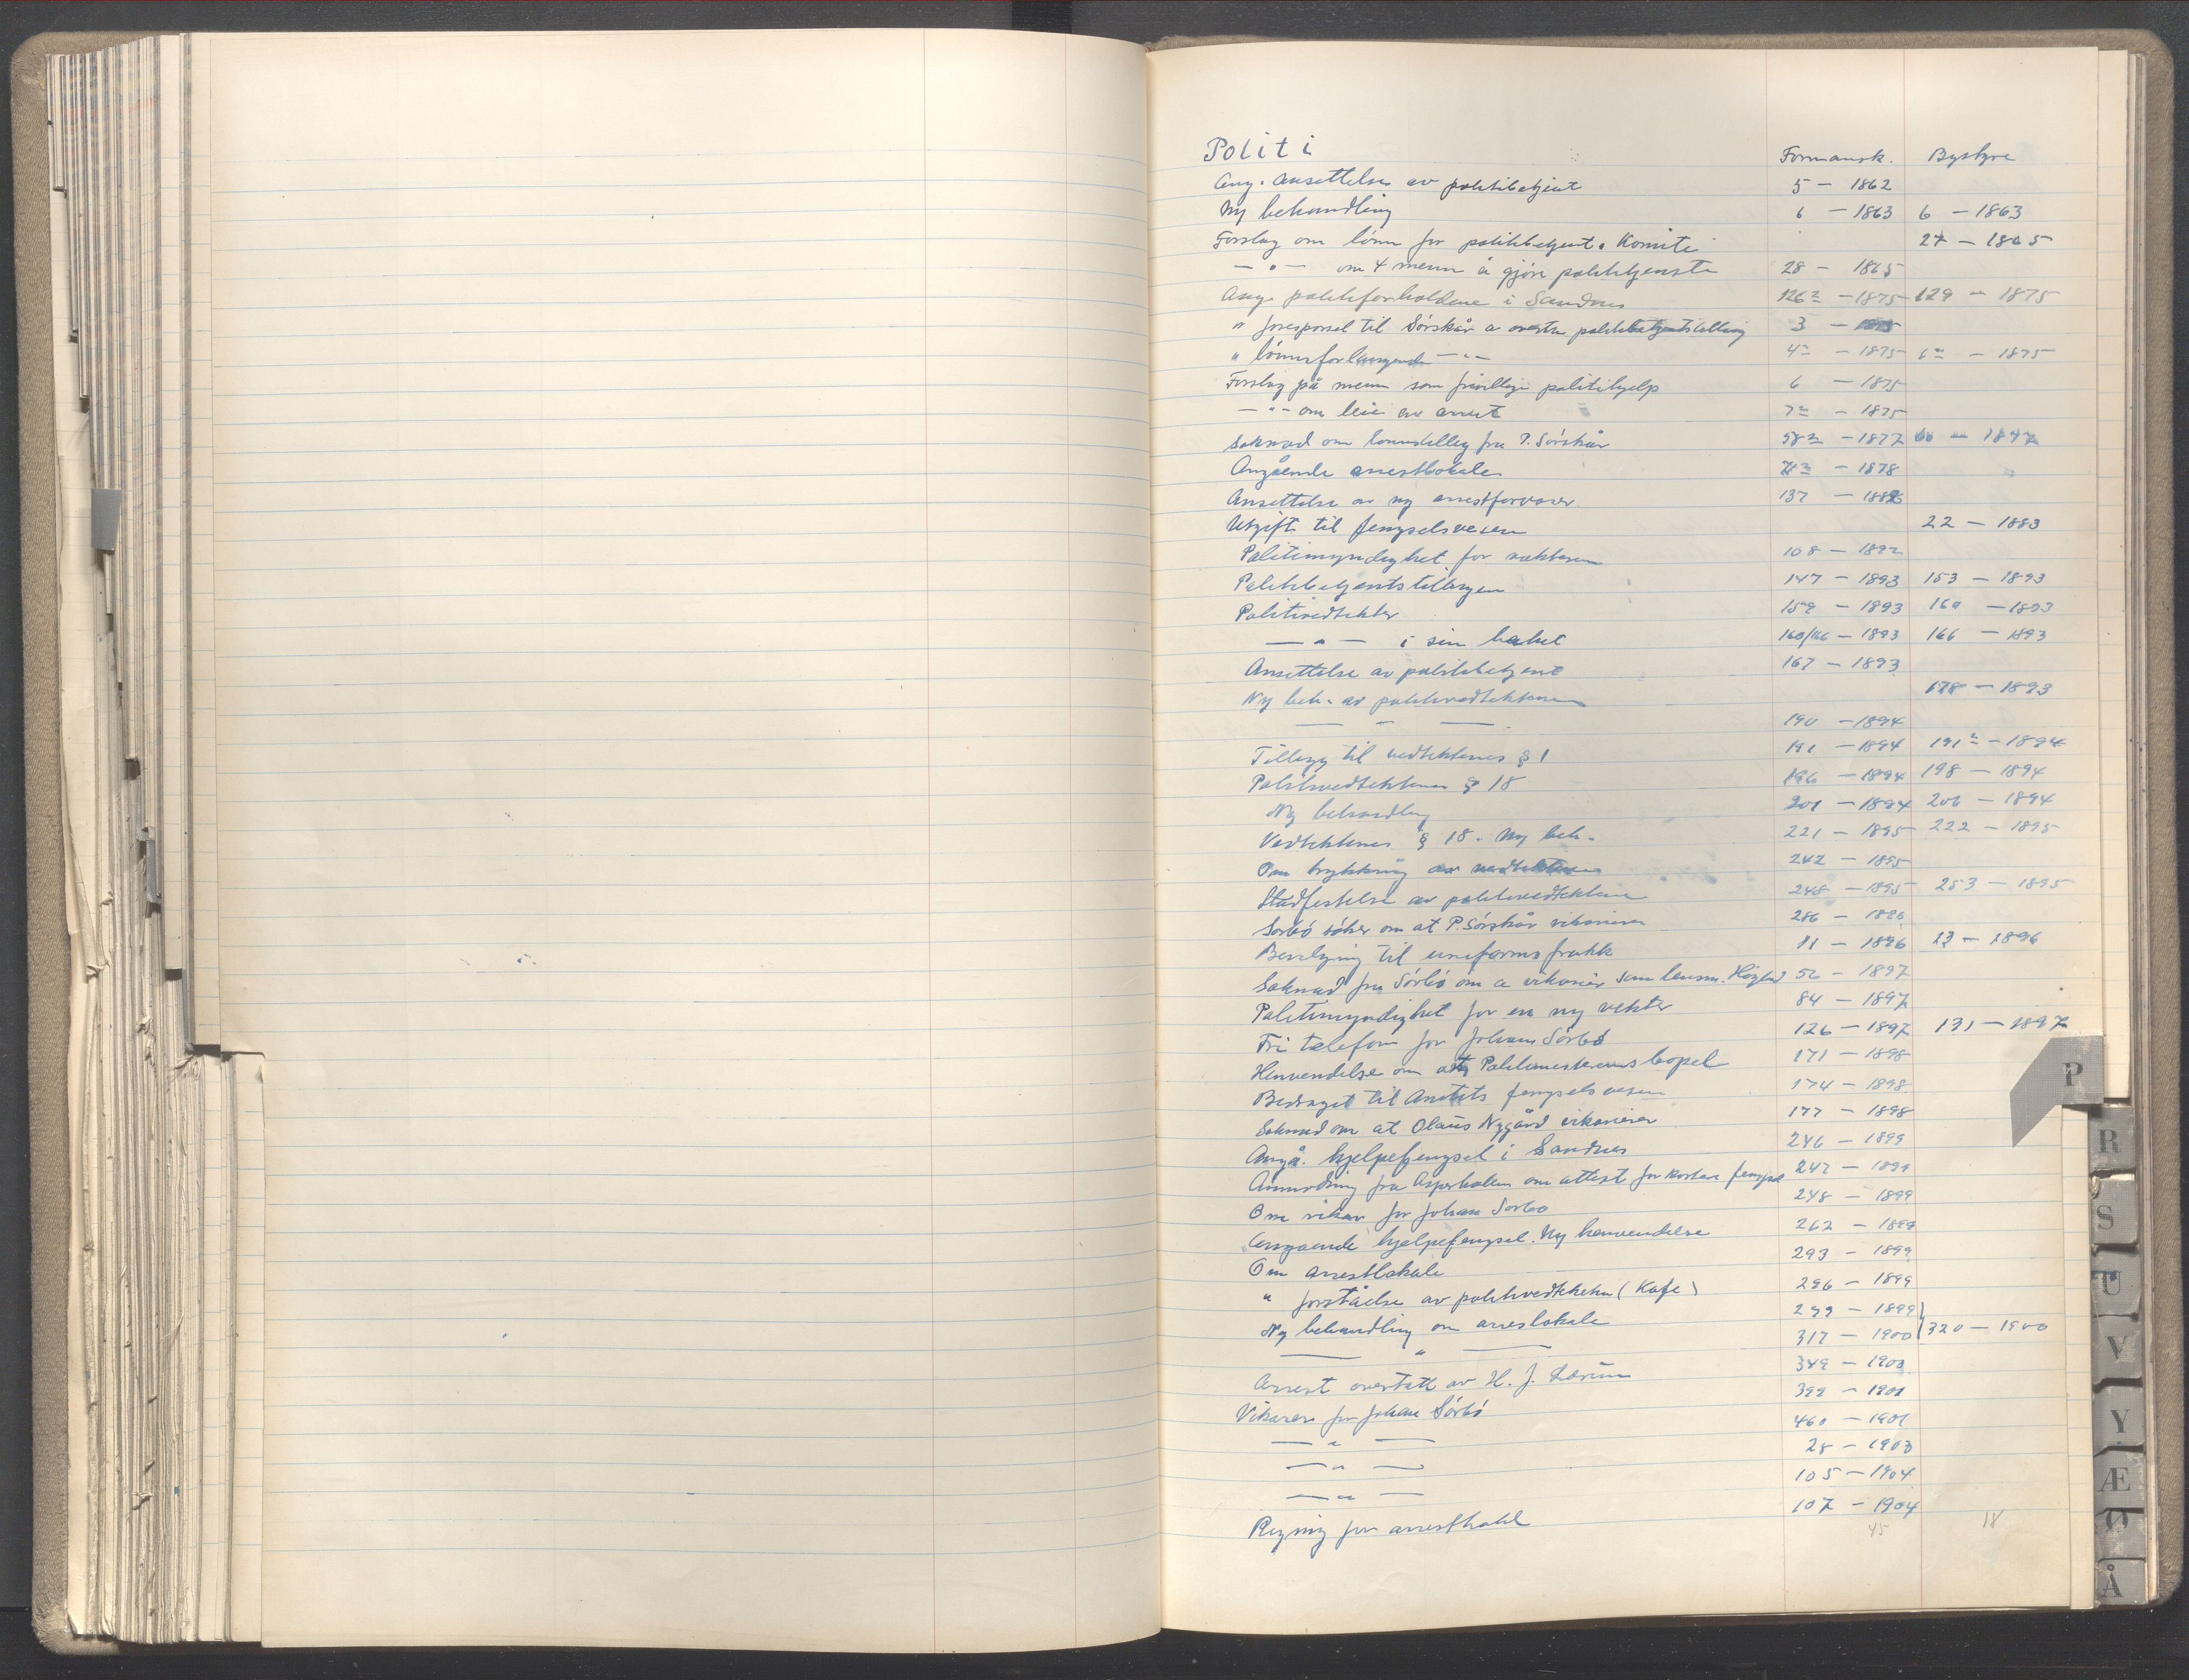 Politi
Formansk. Bystyre
Ang. ansettelse av politibetjent 5 — 1862
Ny behandling 6 — 1863 6 — 1863
Forslag om lönn for politibetjent. Komite 27 — 1865
— " — om 4 menn å gjøre polititjeneste 28 — 1865
Ang. politiforholdene i Sandnes 126 a — 1875 129 — 1875
" forespørsel til Sörskår å overta politibetjentstilling 3 —
" lönnsforlangende — " — 4 a — 1875 6 a — 1875
Forslag på menn som frivillige politihjelp 6 — 1875
— " — om leie av arrest 7 a — 1875
Søknad om lønnstillegg fra P. Sörskår 58 a — 1877
Angående arrestlokale — 1878
Ansettelse av ny arrestforvarer 137 —
Utgift til fengselsvesen 22 — 1883
Politimyndighet for vekteren 108 — 1892
Politibetjentstillingen 147 — 1893 153 — 1893
Politivedtekter 159 — 1893 160 — 1893
— " — i sin helhet 160/166 — 1893 166 — 1893
Ansettelse av politibetjent 167 — 1893
Ny beh. av politivedtektene 178 — 1893
— " — 190 — 1894
Tillegg til vedtektenes § 1 191 — 1894 191 a — 1894
Politivedtektenes § 18 196 — 1894 198 — 1894
Ny behandling 201 — 1894 206 — 1894
Vedtektenes § 18. Ny beh. 221 — 1895 222 — 1895
Om trykking av vedtektene 242 — 1895
Stadfestelse av politivedtektene 248 — 1895 253 — 1895
Sörbö söker om at P. Sörskår vikarierer 286 — 1896
Bevilgning til uniformsfrakk 11 — 1896 13 — 1896
Søknad fra Sörbö om å vikariere som lensm. Högland 52 — 1897
Politimyndighet for en ny vekter 84 — 1897
Fri telefon for Johan Sörbö 126 — 1897 131 — 1897
Henvendelse om Politimesterens bopel 171 — 1898
Bidraget til Amtets fengselsvesen 174 — 1898
Søknad om at Olaus Nygård vikarierer 177 — 1898
Angå. hjelpefengsel i Sandnes 246 — 1899
Anmodning fra Asperholen om attest for kortere fengsel 247 — 1899
Om vikar for Johan Sörbö 248 — 1899
Angående hjelpefengsel. Ny henvendelse 262 — 1899
Om arrestlokale 293 — 1899
" forståelse av politivedtektene (Kafe) 296 — 1899
Ny behandling om arrestlokale 299 — 1899
— " — 317 — 1900 } 320 — 1900
Arrest overtatt av H. J. Lærum 349 — 1900
Vikarer for Johan Sörbö 399 — 1901
— " — 460 — 1901
— " — 28 — 1903
— " — 105 — 1904
Regning for arresthold 107 — 1904
45 18
P
R
S
U
V
Y
Æ
Å